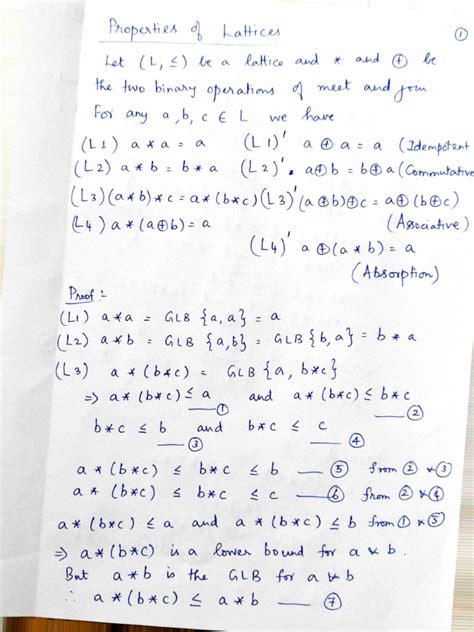 Properties of Lattices
①
Let (L, ≤) be a lattice and * and ⊕ be
the two binary operations of meet and join
For any a, b, c ∈ L we have
(L1) a * a = a (L1)' a ⊕ a = a (Idempotent
(L2) a * b = b * a (L2)' a⊕b = b⊕a (Commutative
(L3) (a*b)*c = a*(b*c) (L3)' (a⊕b)⊕c = a⊕(b⊕c)
(Associative)
(L4) a*(a⊕b) = a
(L4)' a⊕(a*b) = a
(Absorption)
Proof :-
(L1) a*a = GLB {a,a} = a
(L2) a*b = GLB {a,b} = GLB {b,a} = b * a
(L3) a*(b*c) = GLB {a, b*c}
⇒ a*(b*c) ≤ a —① and a*(b*c) ≤ b*c —②
b*c ≤ b —③ and b*c ≤ c —④
a*(b*c) ≤ b*c ≤ b —⑤ from ② & ③
a*(b*c) ≤ b*c ≤ c —⑥ from ② & ④
a*(b*c) ≤ a and a*(b*c) ≤ b from ① & ⑤
⇒ a*(b*c) is a lower bound for a & b.
But a*b is the GLB for a & b
∴ a*(b*c) ≤ a*b —⑦